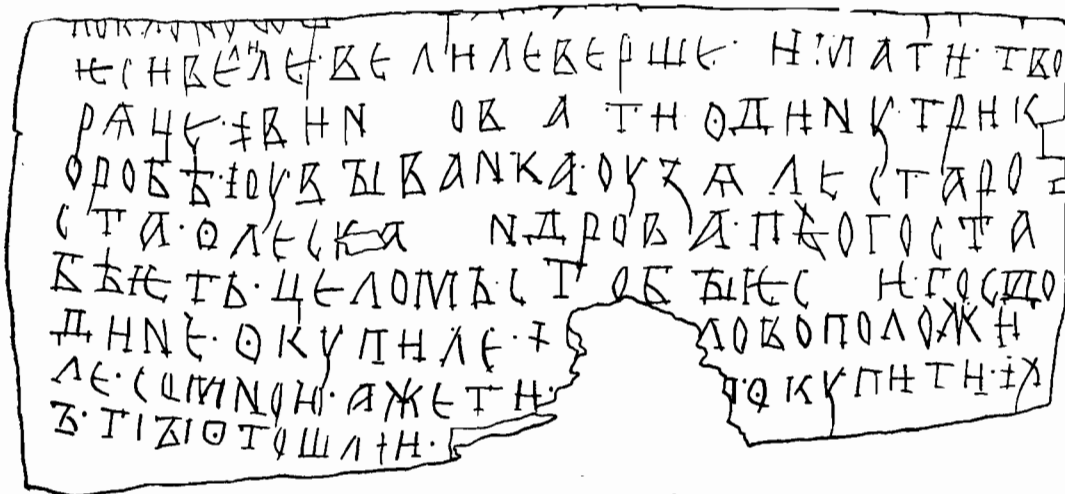 ѤСИВЕЛИЛЕ·ВЕЛИЛЕВЕРШЕ· ИМАТИ·ТВО
РѦЦЕ·ꙆВИN ОВАТИОДИNꙊ·ТРИК
ОРОБЪ·ꙆОУБЪІВАNКА·ОУЗѦЛЕСТАРО
СТА·ОЛЕСКА NДРОВА·ПОГОСТА
БЪѤТЬ·ЦЕЛОМЪСТ ОБЪІѤС И·ГОСПО
ДИNЕ·ОКУПИЛЕ·Ꙇ ЛОВОПОЛОЖИ
ЛЕ·СОМNОИ·АЖЕТИ· ОКУПИТИ·ꙆХ
Ъ·ТІЪІОТОШЛИ·